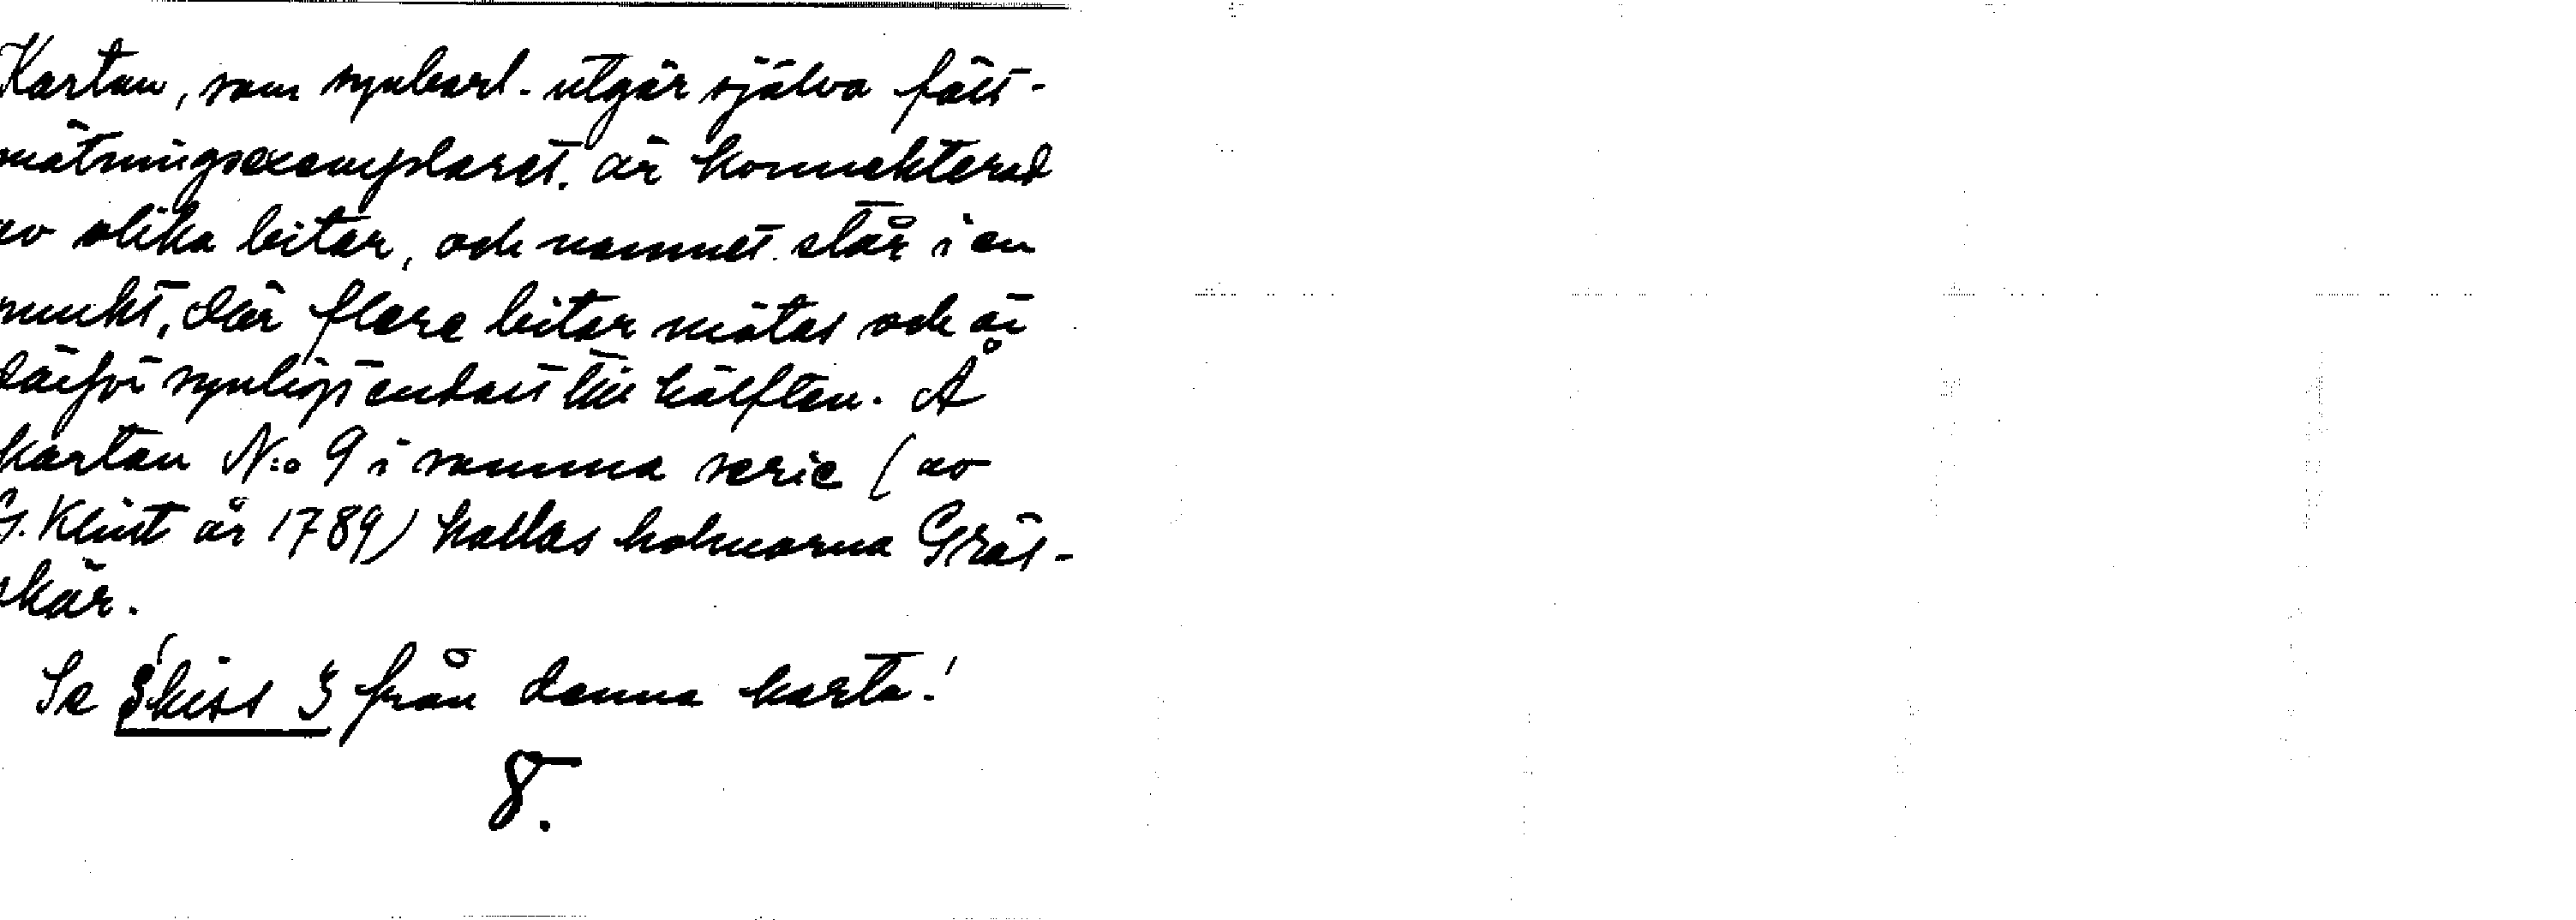 Kartan, som synbarl. utgör själva fält-
mätningsexemplaret, är konnekterad
av olika bitar, och namnet står i en
punkt, där flere bitar mötas och är
därför synligt endast till hälften. Å
kartan N:o 9 i samma serie (av
G. Klint år 1789) kallas holmarna Gräs-
skär.
Se Skiss 3 från denna karta!
8.